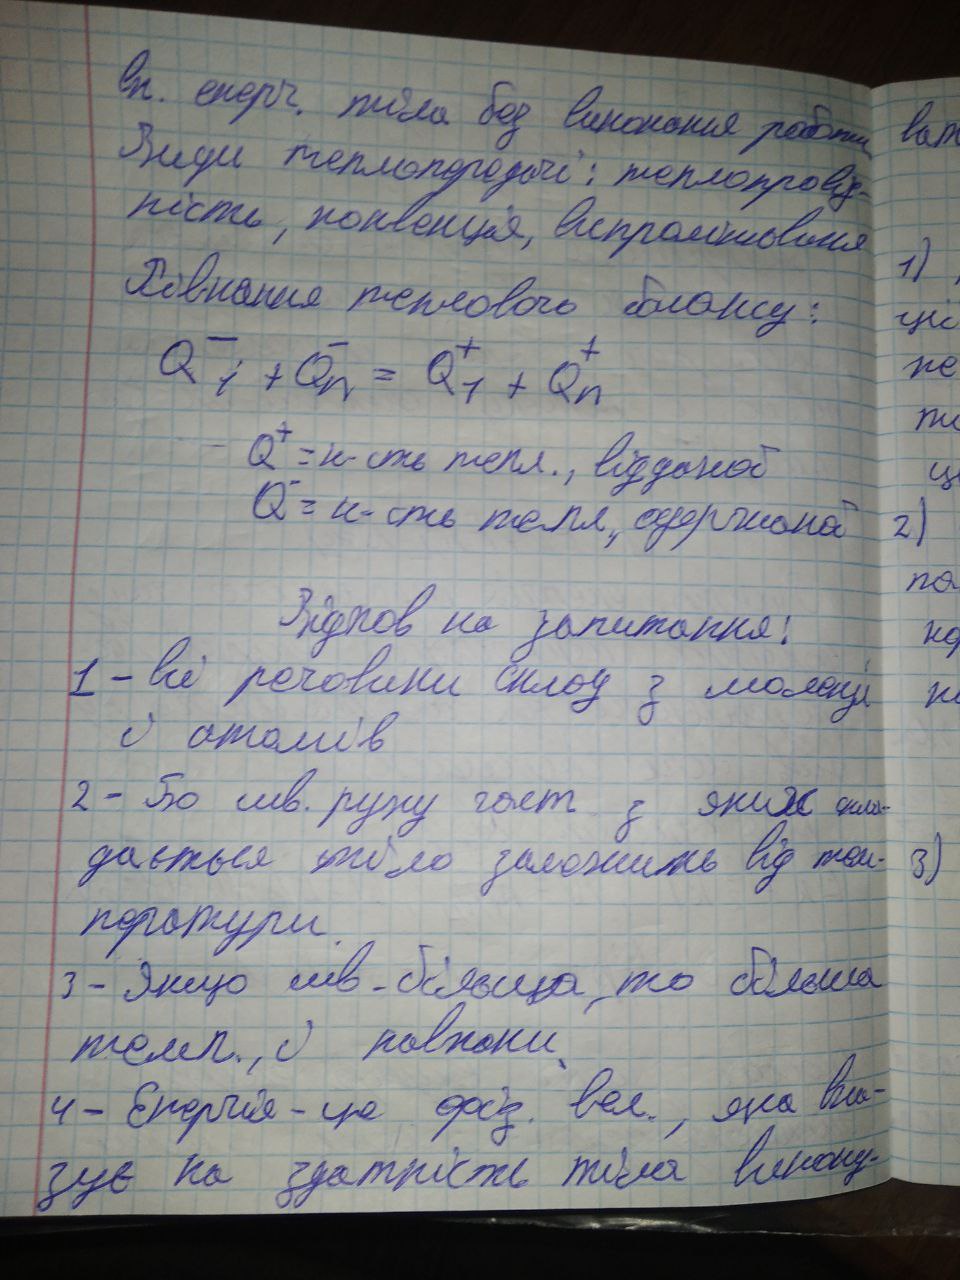 вн. енерг. тіла без виконання роботи
Види теплопередачі: теплопровід-
ність, конвенція, випромінювання
Рівнання теплового балансу:
Q⁻₁ + Q⁻ₙ = Q⁺₁ + Q⁺ₙ
Q⁺ = к-сть тепл., відданой
Q⁻ = к-сть тепл., одержаной
Відпов на запитання:
1 - Всі речовини склад з молекул
і атомів
2 - Бо шв. руху част з яких скла-
дається тіло заложить від тем-
ператури.
3 - Якщо шв. більша, то більша
темп., і навпаки
4 - Енергія - це фіз. вел., яка вка-
зує на здатність тіла викону-
ват
1)
ціє
не
ти
це
2)
по
на
3)